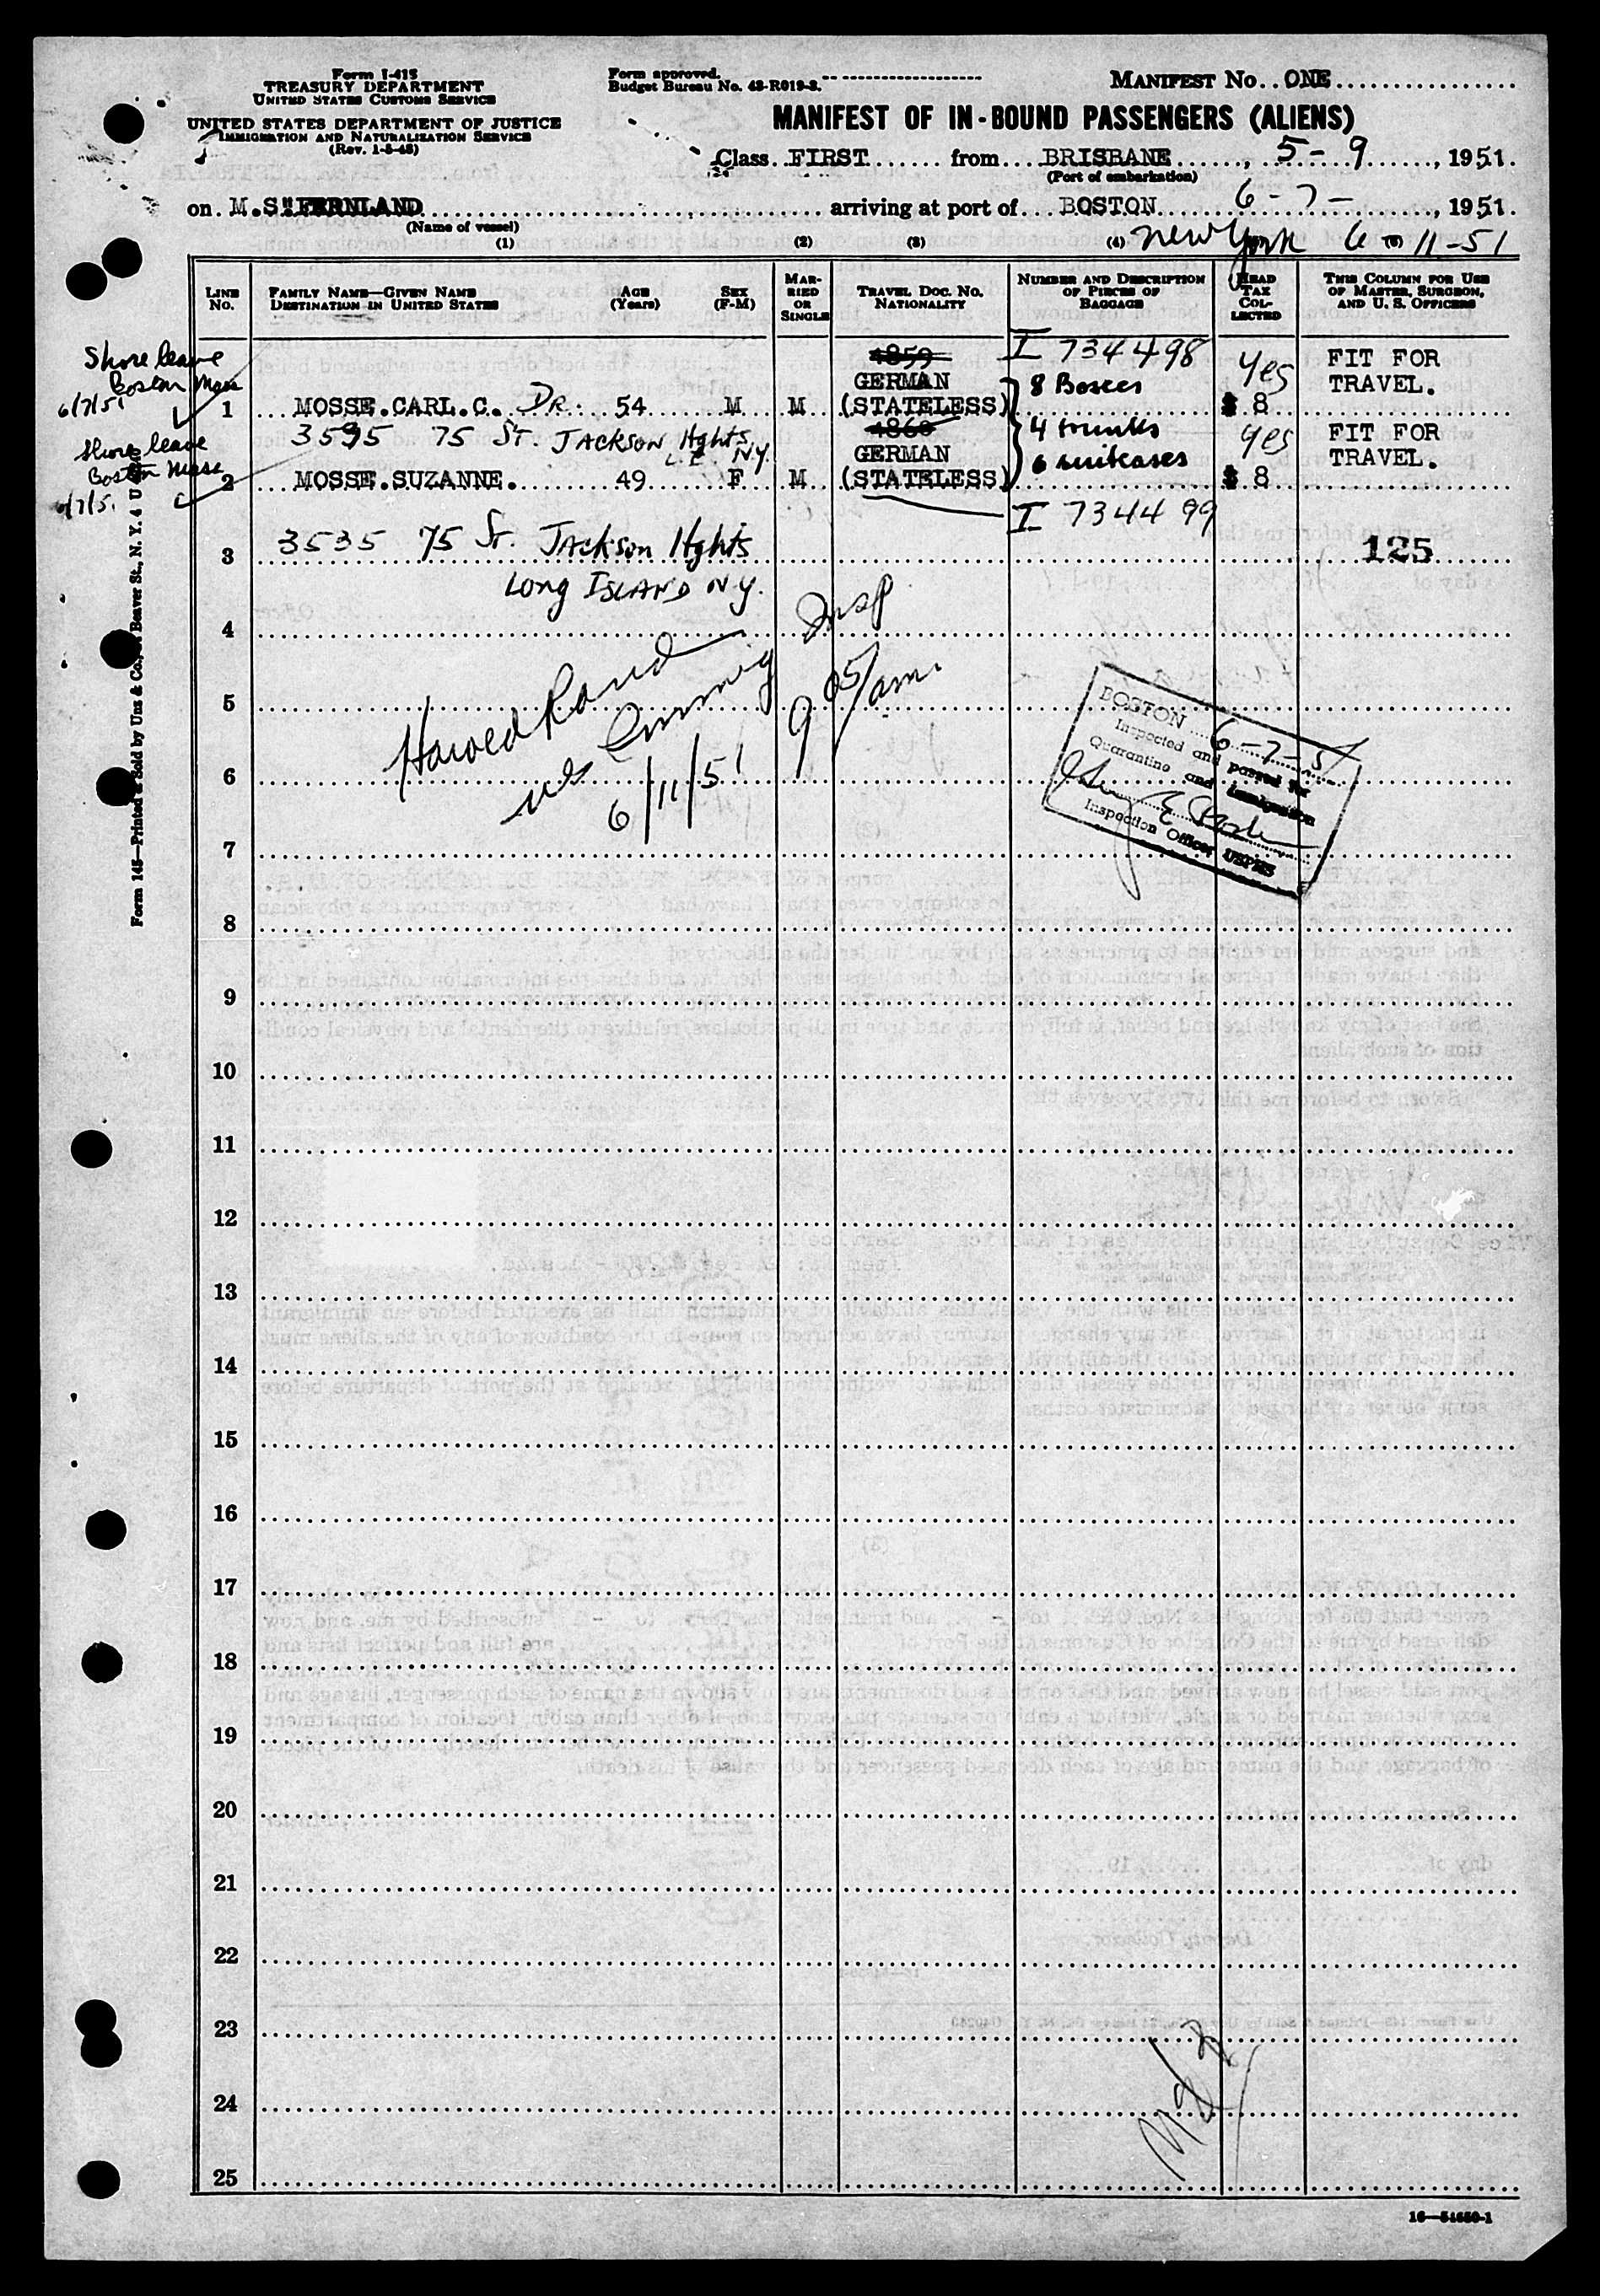 Form I-415
TREASURY DEPARTMENT
UNITED STATES CUSTOMS SERVICE
UNITED STATES DEPARTMENT OF JUSTICE
IMMIGRATION AND NATURALIZATION SERVICE
(Rev. 1-5-48)
Form approved.
Budget Bureau No. 43-R019-3.
MANIFEST No. ONE
MANIFEST OF IN-BOUND PASSENGERS (ALIENS)
Class FIRST from BRISBANE, 5-9, 1951.
(Port of embarkation)
on M.S. "FERNLAND arriving at port of BOSTON 6-7-, 1951.
(Name of vessel)
New York 6-11-51
(1) (2) (3) (4)
LINE No.
FAMILY NAME—GIVEN NAME
DESTINATION IN UNITED STATES
AGE (Years)
SEX (F-M)
MARRIED OR SINGLE
TRAVEL DOC. No. NATIONALITY
NUMBER AND DESCRIPTION OF PIECES OF BAGGAGE
HEAD TAX COLLECTED
THIS COLUMN FOR USE OF MASTER, SURGEON, AND U. S. OFFICERS
Shore leave
Boston Mass
6/7/51
4859 I 734498 Yes FIT FOR
GERMAN 8 Boxes TRAVEL.
1 MOSSE.CARL.C. DR. 54 M M (STATELESS) $ 8
3595 75 ST. JACKSON Hghts
L.I. N.Y.
Shore leave
Boston Mass
6/7/51
4860 4 trunks yes FIT FOR
GERMAN 6 suitcases TRAVEL.
2 MOSSE.SUZANNE. 49 F M (STATELESS) $ 8
I 734499
3535 75 St. Jackson Hghts
3 125
Long ISLAND N.Y.
4
Insp
5
us Immig
9 05/am.
6
6/11/51
BOSTON 6-7-51
Inspected and passed for
Quarantine and Immigration
Inspection Officer USPHS
7
8
9
10
11
12
13
14
15
16
17
18
19
20
21
22
23
24
25
Form 145—Printed & Sold by Unz & Co., Beaver St., N. Y. 4